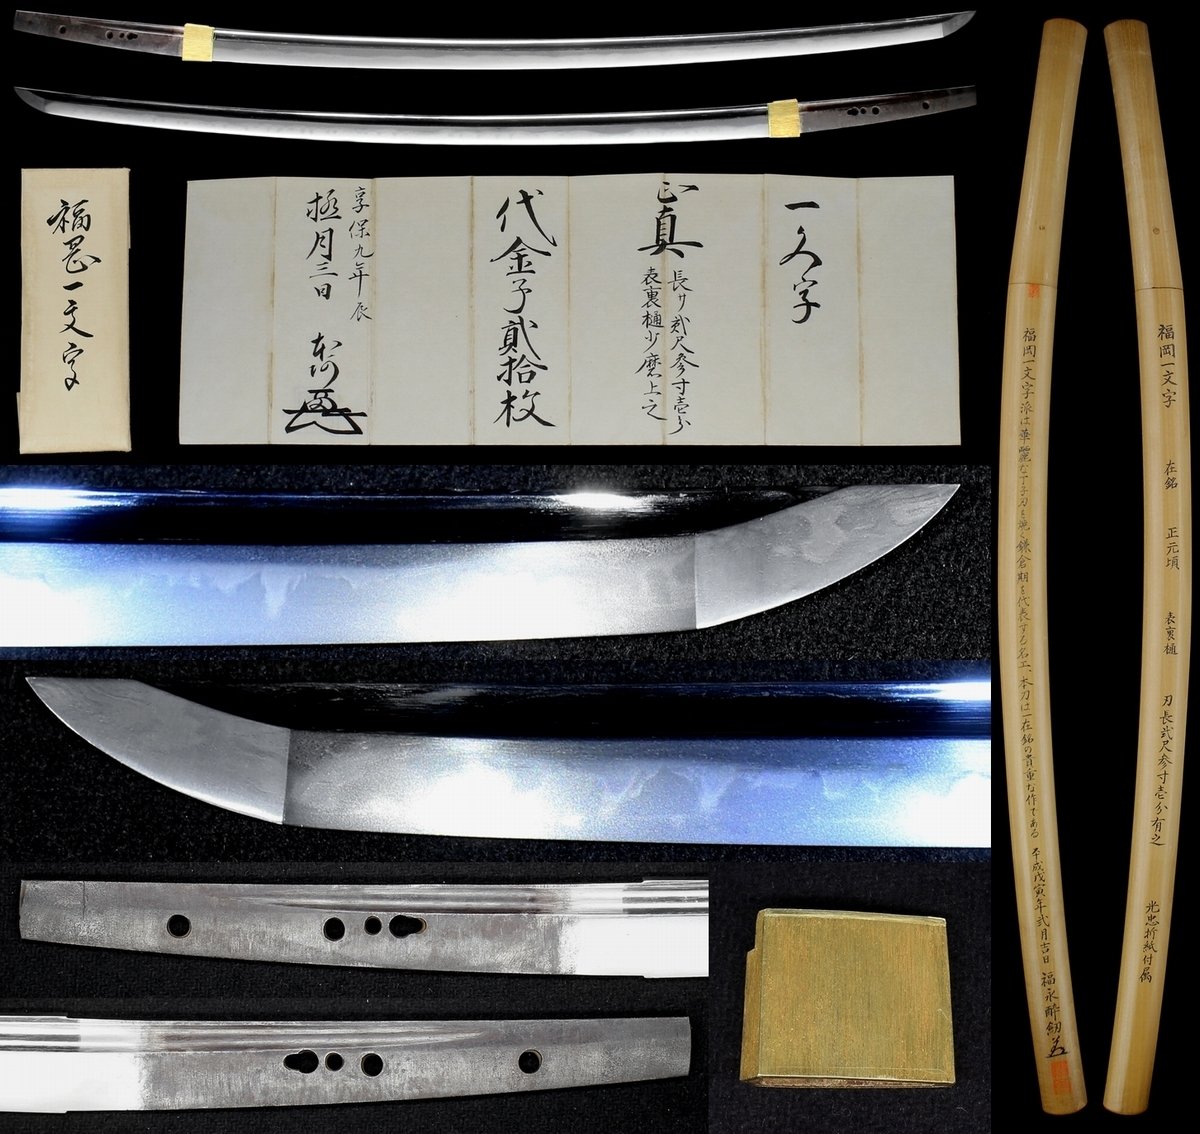 福岡一文字
一文字
正真 長サ弐尺参寸壱分
表裏樋少磨上之
代金子貳拾枚
享保九年辰
極月三日 本阿
福岡一文字 在銘 正元頃 表裏樋 刃長弐尺参寸壱分有之 光忠折紙付属
福岡一文字派は華麗な丁子刃を焼く鎌倉期を代表する名工、本刀は一在銘の貴重な作である 平成戊寅年弐月吉日 福永酔剣